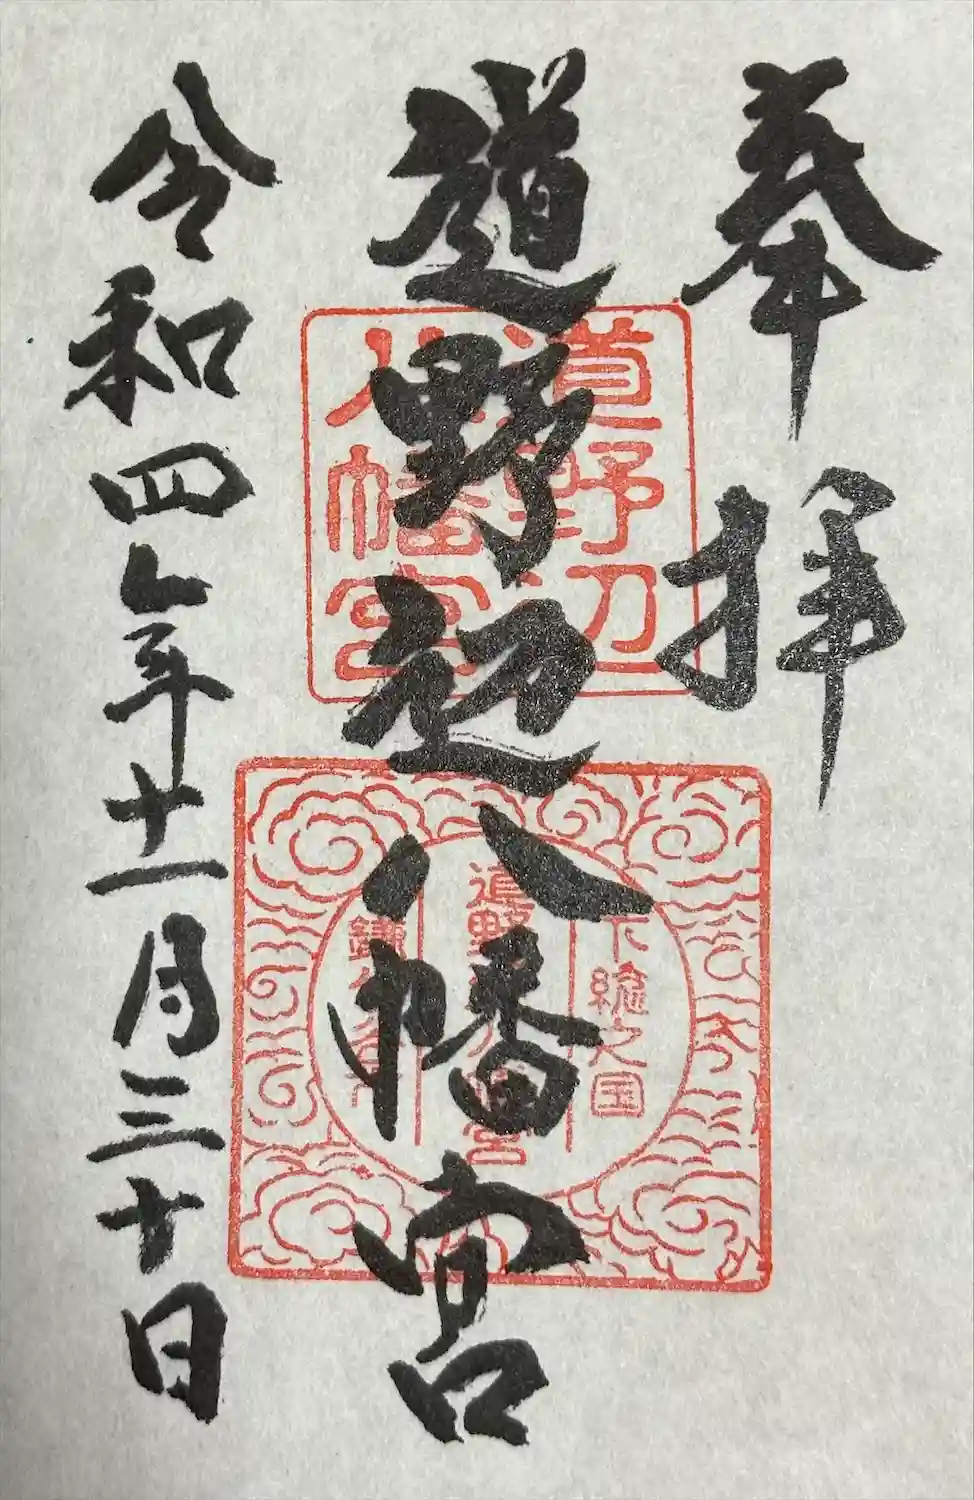 奉拝
道野辺八幡宮
令和四年十一月三十日
道野辺
八幡宮
下総之国
道野辺八幡宮